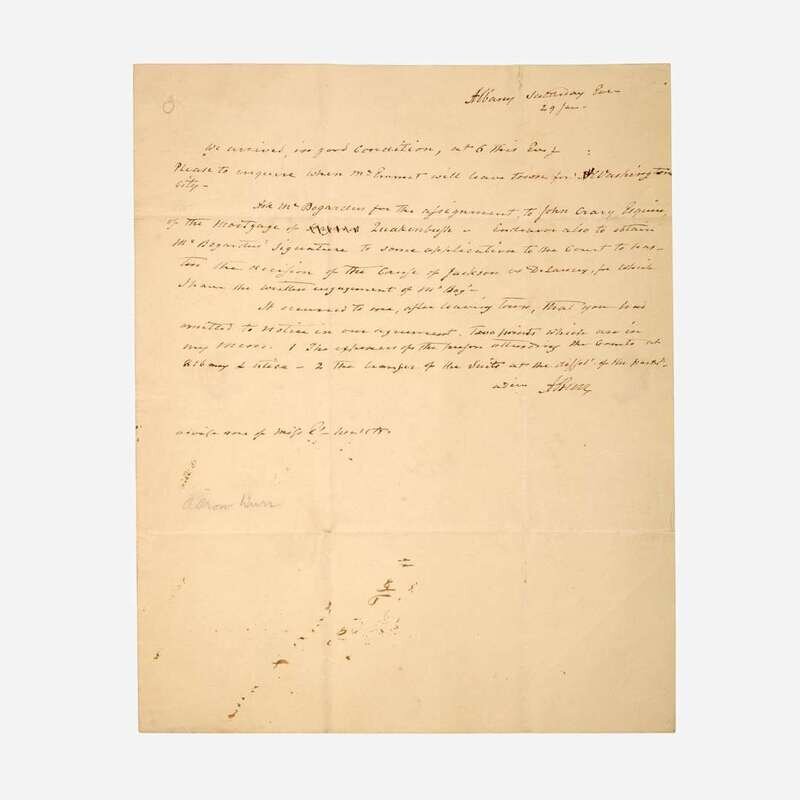 Albany Saturday Eve
29 Jan.
We arrived, in good condition, at 6 this Eveg
Please to enquire when Mr Emmet will leave town for Washington
City -
Ask Mr Bogardus for the assignment, to John Crary Esquire,
of the Mortgage of Quakenbush - Endeavor also to obtain
Mr Bogardus' signature to some application to the Court to has-
ten the decision of the Cause of Jackson vs DeLancey, for which
I have the written engagement of Mr Bog-
It occurred to me, after leaving town, that you had
omitted to notice in our agreement. Two points which are in
my Memo. 1 The expenses of the person attending the Courts at
Albany & Utica - 2 the of the Suits at the dissol. of the
adieu A Burr
me of Miss health
Aaron Burr